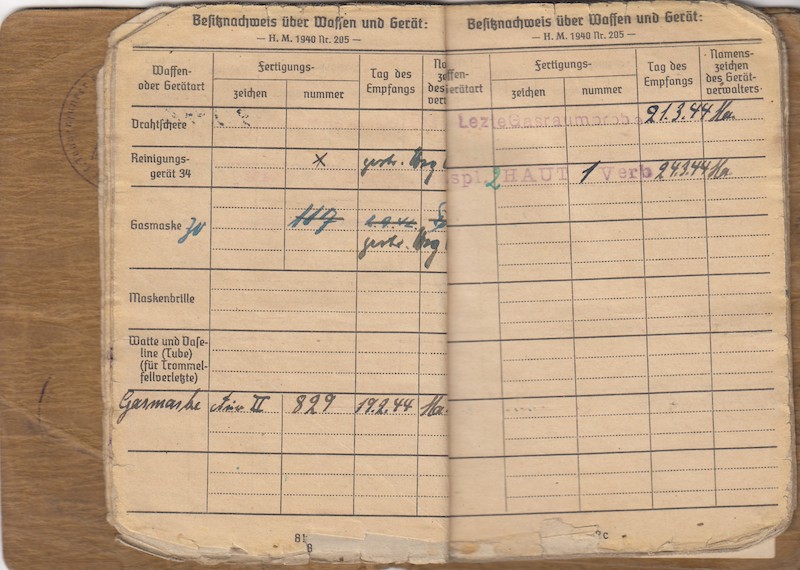 Besitznachweis über Waffen und Gerät:
— H. M. 1940 Nr. 205 —
Waffen-
oder Gerätart
Fertigungs-
zeichen
nummer
Tag des
Empfangs
Drahtschere
Reinigungs-
gerät 34
×
gestr.
Gasmaske 30
117
gestr.
Maskenbrille
Watte und Vase-
line (Tube)
(für Trommel-
fellverletzte)
Gasmaske
II
829
19.2.44
Ha.
81
8
Besitznachweis über Waffen und Gerät:
— H. M. 1940 Nr. 205 —
Fertigungs-
zeichen
nummer
Tag des
Empfangs
Namens-
zeichen
des Gerät-
verwalters
Lezte Gasraumprobe
21.3.44
Ha.
2 HAUT
1
Verb
24.3.44
Ha